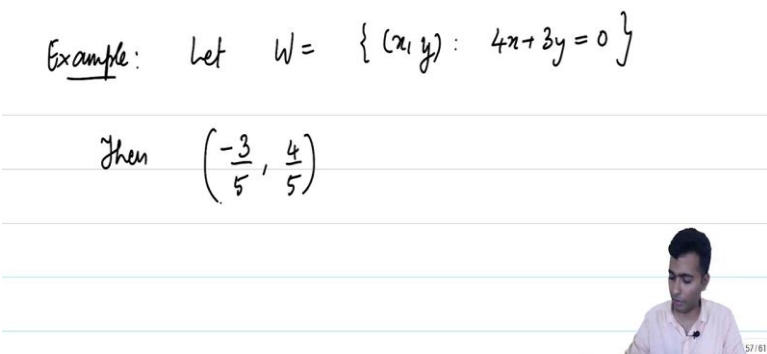 Example: Let W = { (x, y) : 4x + 3y = 0 }
Then (-3/5, 4/5)
57/61